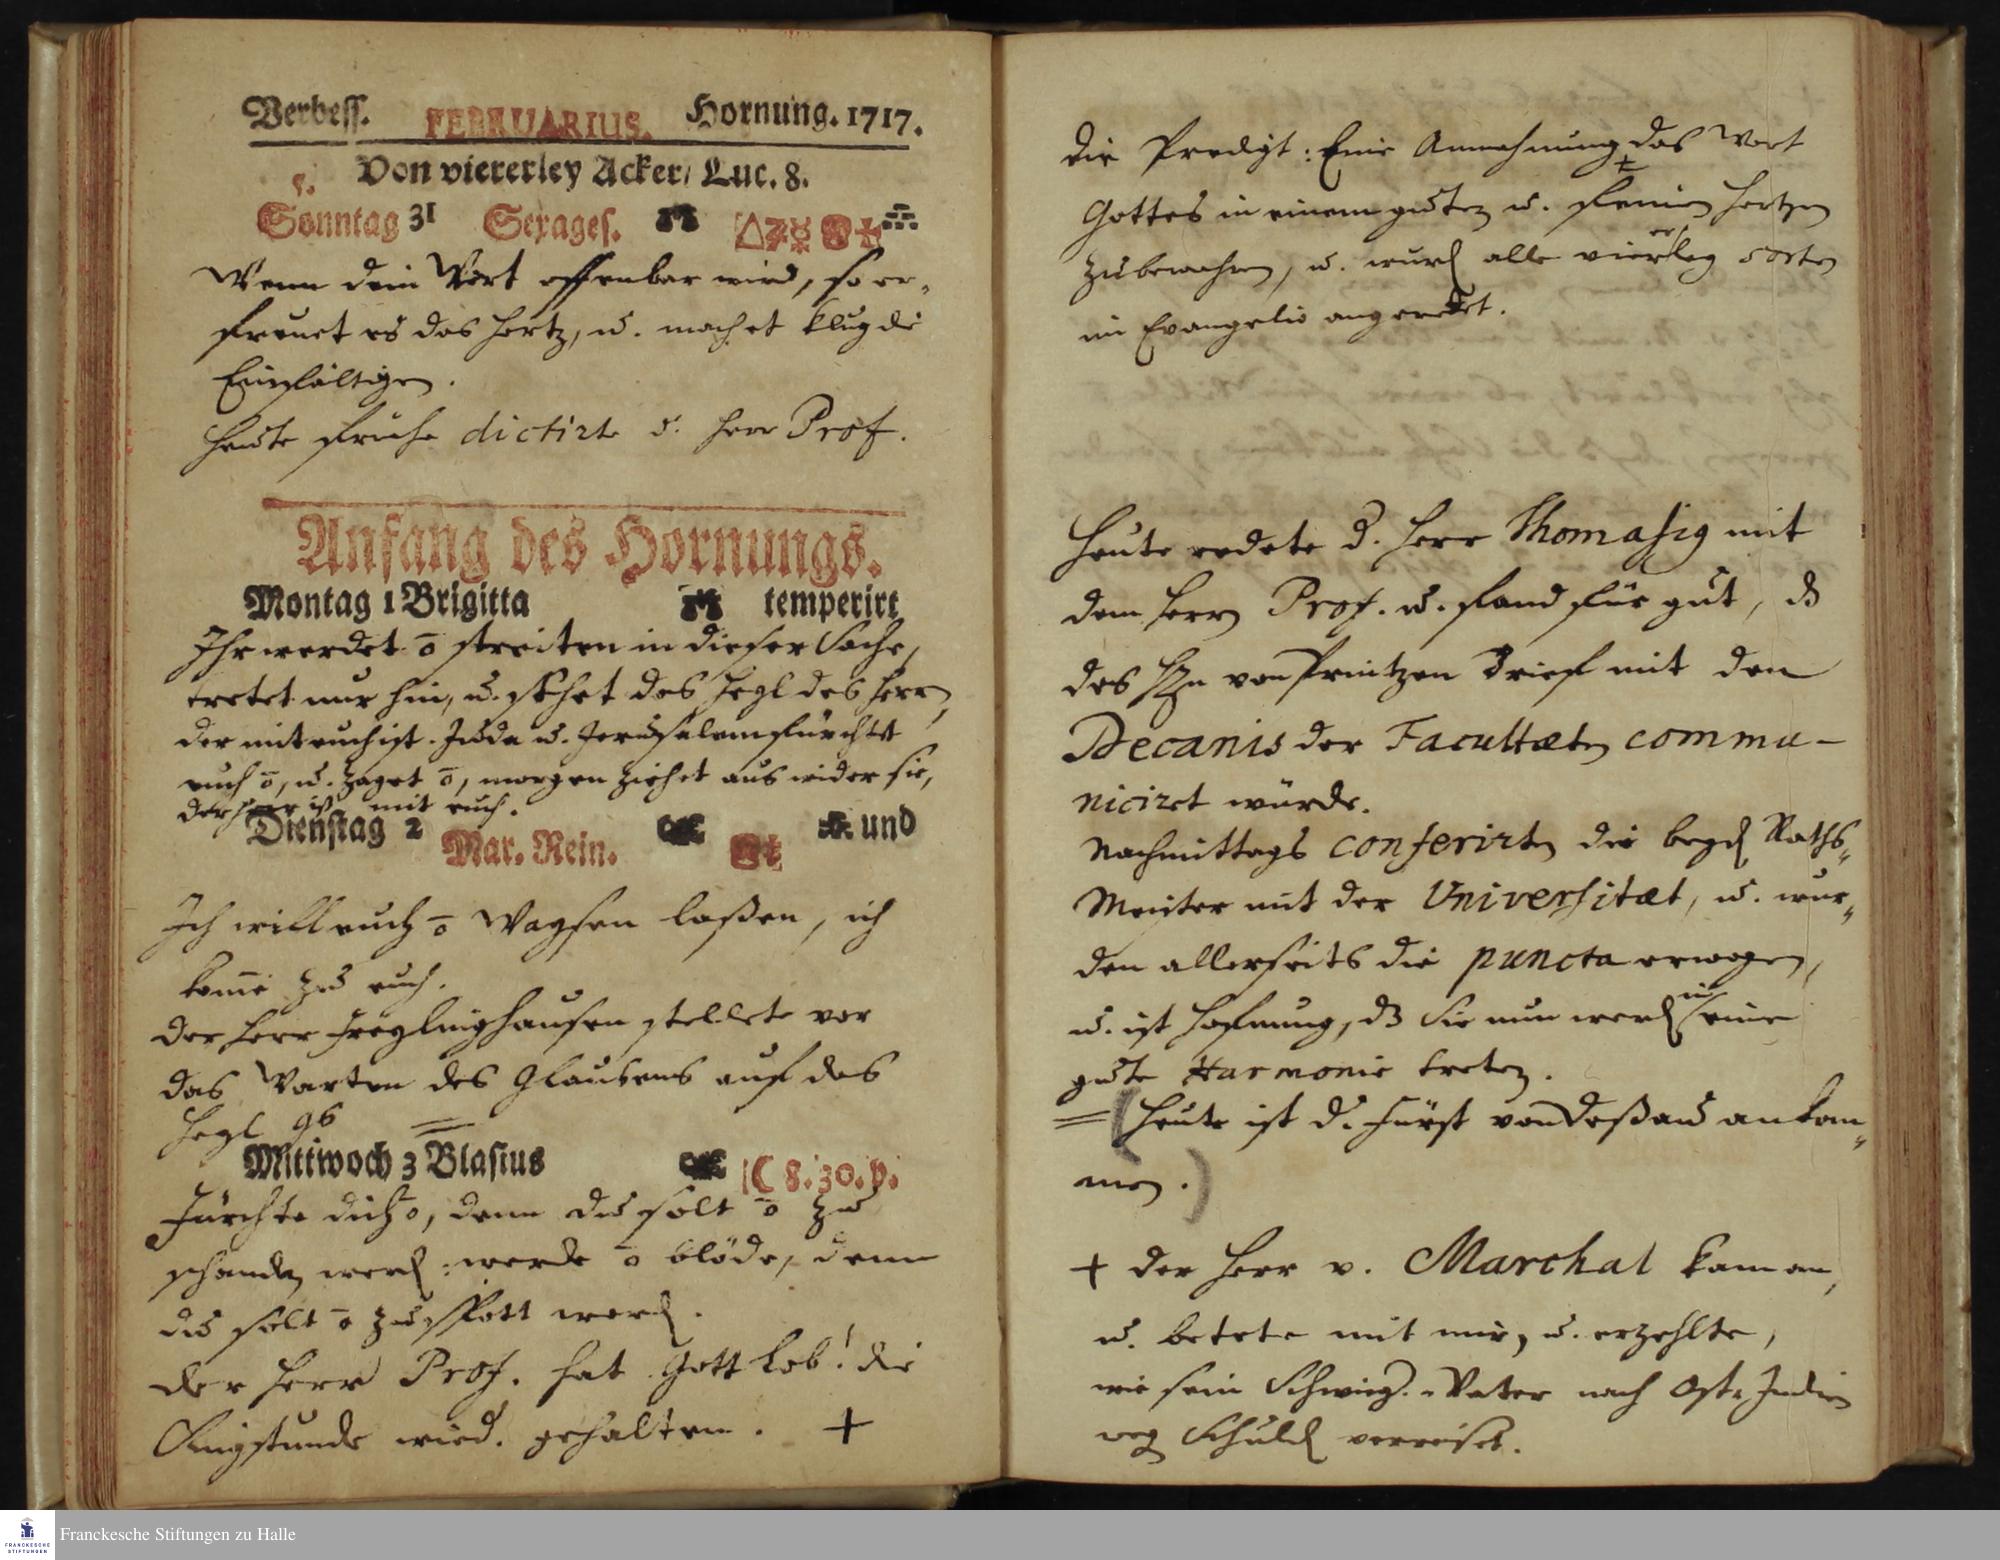 Verbess. FEBRUARIUS. Hornung. 1717.
Von viererley Acker/ Luc. 8.
Sonntag 31 Sexages.
Wenn dein Wort offenbar wird, so er-
freuet es das Hertz, u. machet klug die
Einfältigen.
Heute fruhe dictirte d. Herr Prof.
Anfang des Hornungs.
Montag 1 Brigitta temperirt
Ihr werdet ō streiten in dieser Sache,
tretet nur hin, u. sehet das Heyl des Herrn,
der mit euch ist. Juda u. Jerusalem fürchtet
euch ō, u. zaget ō, morgen ziehet aus wider sie,
der Herr ist mit euch.
Dienstag 2 Mar. Rein. und
Ich will euch ō Waysen laßen, ich
kom̄e zu euch.
Der Herr Freylinghausen stellete vor
das Warten des Glaubens auf das
Heyl
Mittwoch 3 Blasius 8. 30. v.
Fürchte dich ō, denn du solt ō zu
schanden werd: werde ō blöde, denn
du solt ō zu spott werd.
Der Herr Prof. hat Gott Lob! die
Singstunde wied. gehalten. +
die Predigt: Eine Anmahnung das Wort
+
Gottes in einem guten u. feinen Hertzen
zu bewahren, u. wurd alle viererley sorten
im Evangelio angeredet.
Heute redete d. Herr Thomasig mit
dem Herrn Prof. u. fand für gut, dß
des Hn von Printzen Brief mit den
Decanis der Facultæten commu-
niciret würde.
Nachmittags conferirten die beyd Raths-
Meister mit der Universitæt, u. wur-
den allerseits die puncta erwogen,
u. ist Hofnung, dß Sie nun werd in eine
gute Harmonie treten.
= (Heute ist d. Fürst von Deßau ankom-
men.)
+ Der Herr v. Marchal kam an,
u. betete mit mir, u. erzehlte,
wie sein Schwieg.-Vater nach Ost-Indien
weg Schuld verreiset.
FRANCKESCHE STIFTUNGEN
Franckesche Stiftungen zu Halle